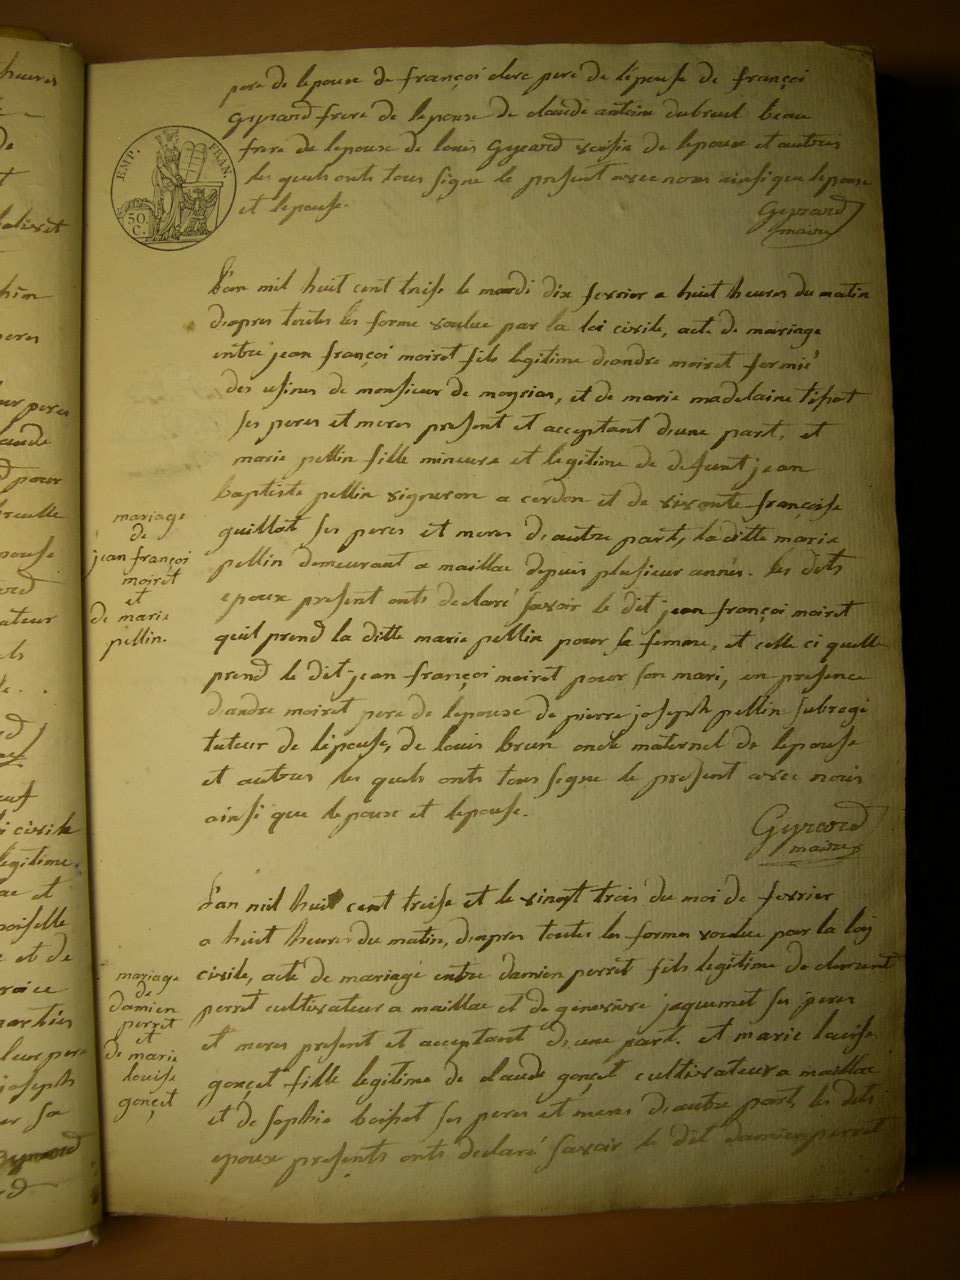 pere de lepoux de françoi clerc pere de lépouse de françoi
Gyrard frere de lepouse de claude antoine dubreul beau
frere de lepouse de louis Gyrard cousin de lepoux et autres
les quels onts tous signe le present avec nous ainsi que lepoux
et lepouse.
Gyrard
maire
EMP. FRAN.
50.
C.
L'an mil huit cent treise le mardi dix fevrier a huit heures du matin
diapres toutes les forme voulue par la loi civile, acte de mariage
entre jean françoi moiret fils legitime diandre moiret fermié
des usines de monsieur de moyrias, et de marie madelaine tissot
ses peres et meres present et acceptant diune part, et
marie pellin fille mineure et legitime de defunt jean
baptiste pellin vigneron a cerdon et de françoise
guillot ses peres et meres diautre part, la ditte marie
pellin demeurant a maillac depuis plusieur annés. les dits
epoux present onts declaré savoir le dit jean françoi moiret
quil prend la ditte marie pellin pour sa femme, et celle ci quelle
prend le dit jean françoi moiret pour son mari, en presence
diandre moiret pere de lepoux de pierre joseph pellin subrogé
tuteur de lépouse, de louis brun oncle maternel de lepouse
et autres les quels onts tous signe le present avec nous
ainsi que lepoux et lepouse.
Gyrard
maire
mariage
de
jean françoi
moiret
et
de marie
pellin.
L'an mil huit cent treise et le vingt trois du moi de fevrier
a huit heures du matin, diapres toutes les formes voulue par la loy
civile, acte de mariage entre damien perret fils legitime de clement
perret cultivateur a maillac et de genevieve jaquemet ses peres
et meres present et acceptant diune part. et marie louise
gonçet fille legitime de claude gonçet cultivateur a maillac
et de sophie boisot ses peres et meres diautre part, les dits
epoux presents onts declaré savoir le dit damien perret
mariage
de
damien
perret
et
de marie
louise
gonçet